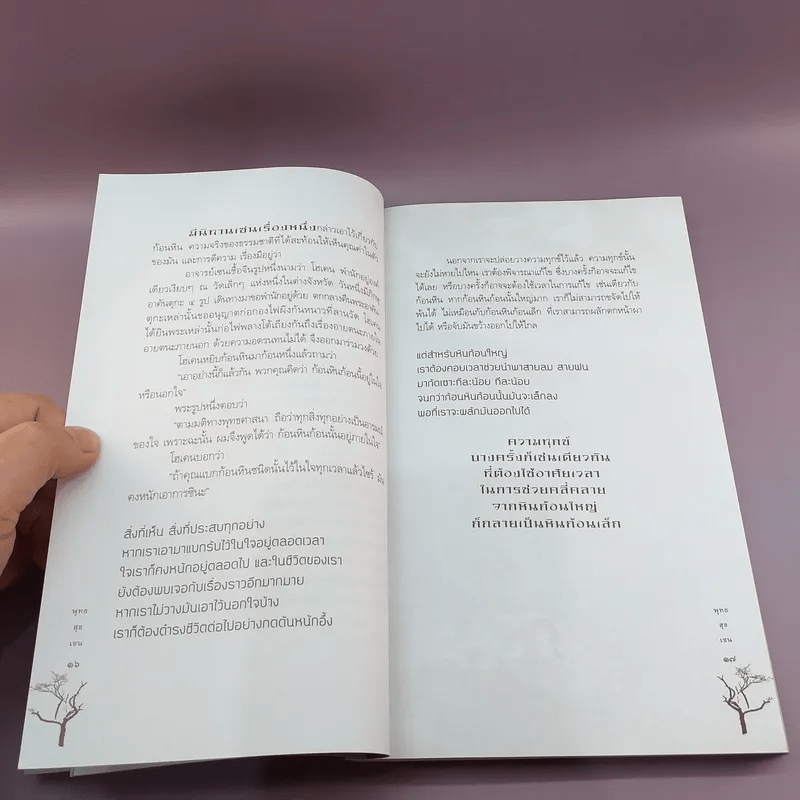 มีนิทานเซนเรื่องหนึ่งกล่าวเอาไว้เกี่ยวกับ
ก้อนหิน ความจริงของธรรมชาติที่ได้สะท้อนให้เห็นคุณค่าในตัว
ของมัน และการตีความ เรื่องมีอยู่ว่า
อาจารย์เซนเชื้อจีนรูปหนึ่งนามว่า โฮเคน พำนักอยู่องค์
เดียวเงียบๆ ณ วัดเล็กๆ แห่งหนึ่งในต่างจังหวัด วันหนึ่งมีภิกษุ
อาคันตุกะ ๔ รูป เดินทางมาขอพำนักอยู่ด้วย ตกกลางคืนพระอาคัน
ตุกะเหล่านั้นขออนุญาตก่อกองไฟผิงกันหนาวที่ลานวัด โฮเคน
ได้ยินพระเหล่านั้นก่อไฟพลางโต้เถียงกันถึงเรื่องอายตนะภายใน
อายตนะภายนอก ด้วยความอดรนทนไม่ได้ จึงออกมาร่วมวงด้วย
โฮเคนหยิบก้อนหินมาก้อนหนึ่งแล้วถามว่า
"เอาอย่างนี้ก็แล้วกัน พวกคุณคิดว่า ก้อนหินก้อนนี้อยู่ในใจ
หรือนอกใจ"
พระรูปหนึ่งตอบว่า
"ตามมติทางพุทธศาสนา ถือว่าทุกสิ่งทุกอย่างเป็นอารมณ์
ของใจ เพราะฉะนั้น ผมจึงพูดได้ว่า ก้อนหินก้อนนั้นอยู่ภายในใจ"
โฮเคนบอกว่า
"ถ้าคุณแบกก้อนหินชนิดนั้นไว้ในใจทุกเวลาแล้วไซร้ มัน
คงหนักเอาการซินะ"
สิ่งที่เห็น สิ่งที่ประสบทุกอย่าง
หากเราเอามาแบกรับไว้ในใจอยู่ตลอดเวลา
ใจเราก็คงหนักอยู่ตลอดไป และในชีวิตของเรา
ยังต้องพบเจอกับเรื่องราวอีกมากมาย
หากเราไม่วางมันเอาไว้นอกใจบ้าง
เราก็ต้องดำรงชีวิตต่อไปอย่างกดดันหนักอึ้ง
พุทธ
สุข
เซน
๑๖
นอกจากเราจะปล่อยวางความทุกข์ไว้แล้ว ความทุกข์นั้น
จะยังไม่หายไปไหน เราต้องพิจารณาแก้ไข ซึ่งบางครั้งก็อาจจะแก้ไข
ได้เลย หรือบางครั้งก็อาจจะต้องใช้เวลาในการแก้ไข เช่นเดียวกับ
ก้อนหิน หากก้อนหินก้อนนั้นใหญ่มาก เราก็ไม่สามารถขจัดไปให้
พ้นได้ ไม่เหมือนกับก้อนหินก้อนเล็ก ที่เราสามารถผลักตกหน้าผา
ไปได้ หรือจับมันขว้างออกไปให้ไกล
แต่สำหรับหินก้อนใหญ่
เราต้องคอยเวลาช่วยนำพาสายลม สายฝน
มากัดเซาะทีละน้อย ทีละน้อย
จนกว่าก้อนหินก้อนนั้นมันจะเล็กลง
พอที่เราจะพลักมันออกไปได้
ความทุกข์
บางครั้งก็เช่นเดียวกัน
ที่ต้องใช้อาศัยเวลา
ในการช่วยคลี่คลาย
จากหินก้อนใหญ่
ก็กลายเป็นหินก้อนเล็ก
พุทธ
สุข
เซน
๑๗